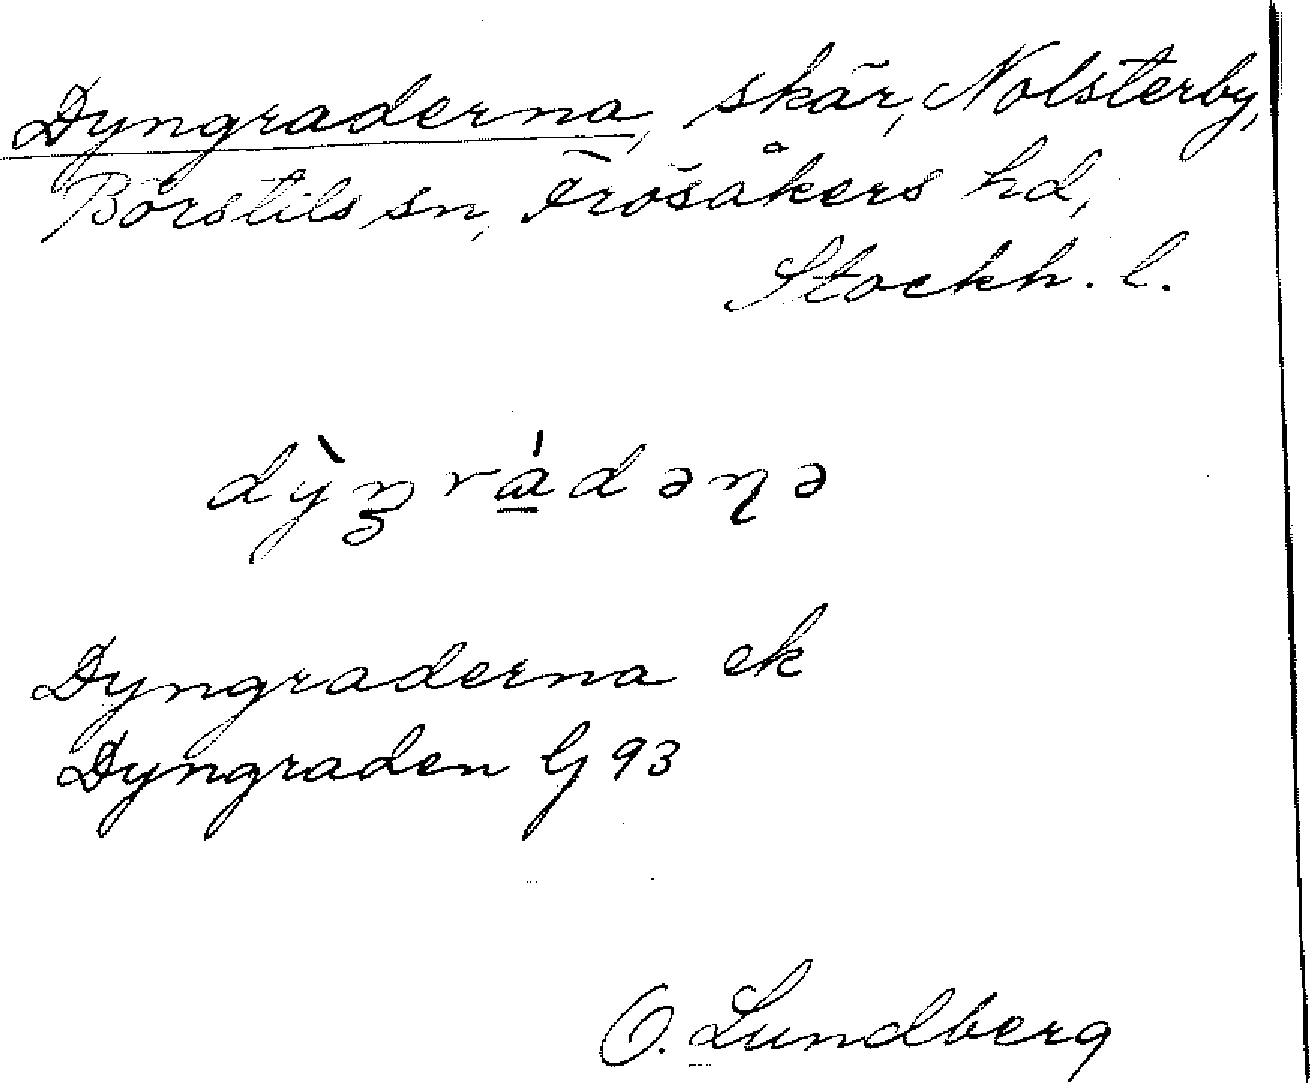 Dyngraderna, skär, Nolsterby,
Börstils sn, Frösåkers hd,
Stockh. l.
dỳŋrádəɳə
Dyngraderna ek
Dyngraden Gj 93
O. Lundberg